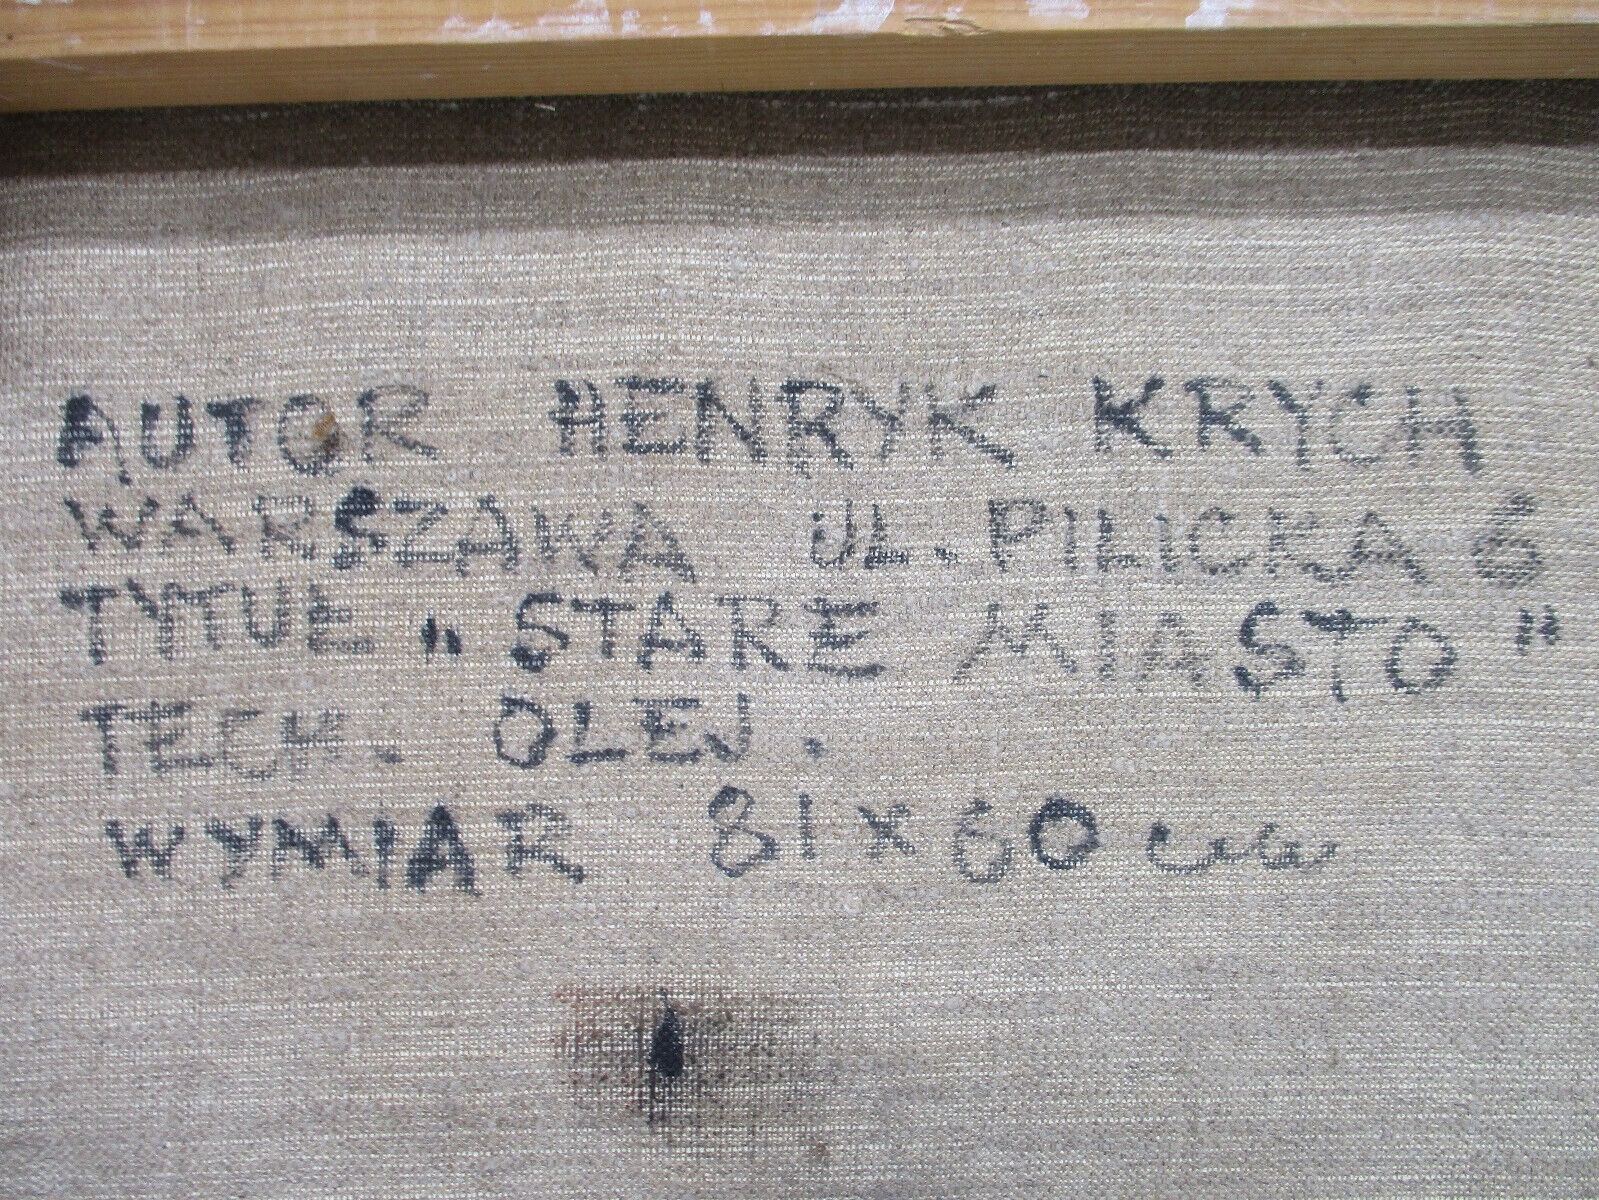 AUTOR HENRYK KRYCH
WARSZAWA UL. PILICKA 6
TYTUŁ „STARE MIASTO"
TECH. OLEJ.
WYMIAR 81x60 cm